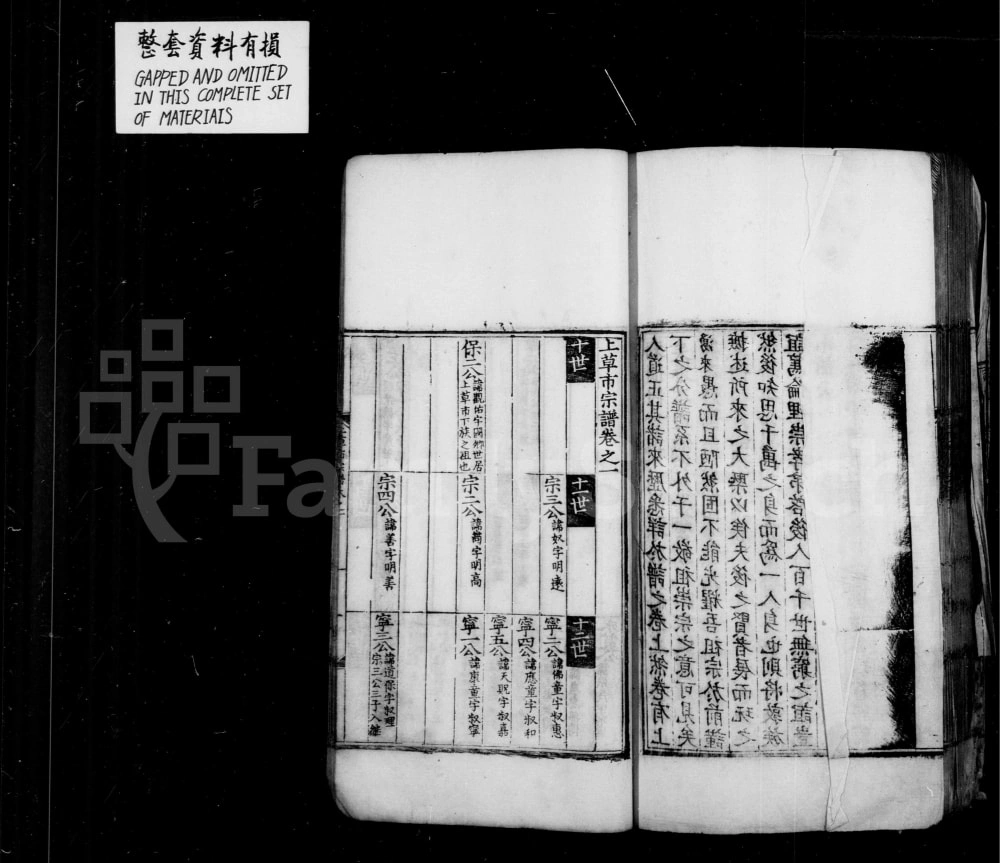 整套資料有損
GAPPED AND OMITTED
IN THIS COMPLETE SET
OF MATERIALS
人道正其諸來歷悉詳於譜之卷上然卷有上
下之分譜系不外于一敬祖崇宗之意可見矣
湯來愚而且陋然固不能光耀吾祖宗於前謹
摭述所來之大槩以俟夫後之賢者展而玩之
然後知思千萬之身而為一人身也則將敦族
誼篤倫理崇孝弟啓後人百千世無窮之誼豈
上草市宗譜卷之一
十世
保二公諱觀佑字國卿世居
上草市下族之祖也
十一世
宗三公諱奴字明遠
宗二公諱蕎字明高
宗四公諱善字明善
十二世
寧二公諱佛童字叔惠
寧四公諱應童字叔和
寧五公諱天貺字叔嘉
寧一公諱東童字叔寧
寧三公諱道保字叔理
宗三公三子入繼